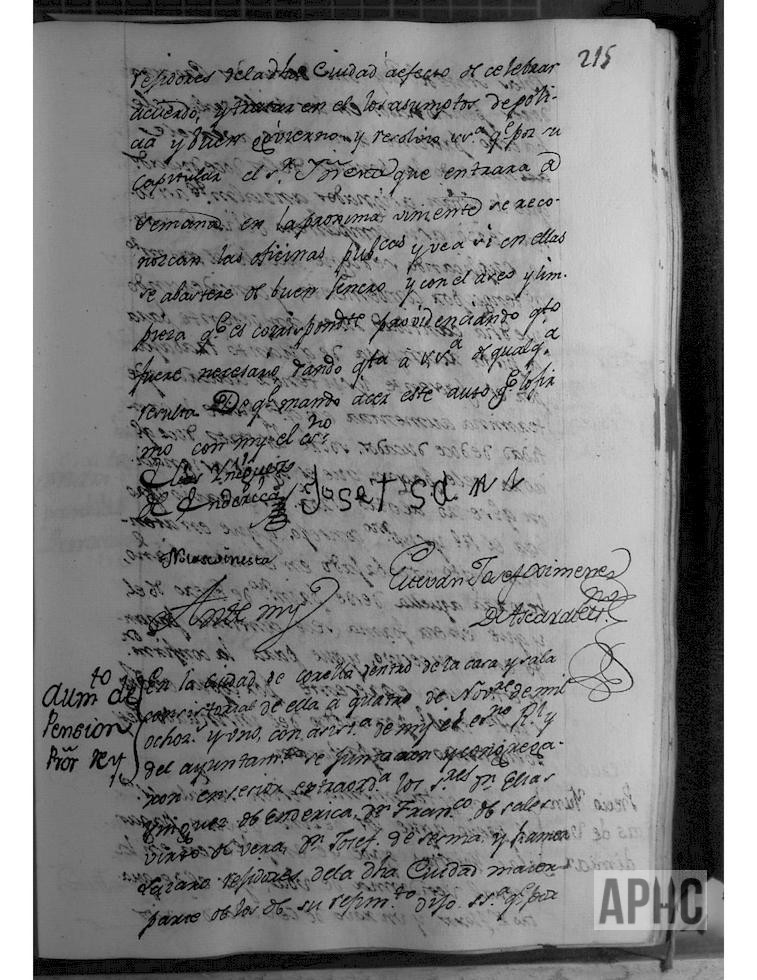 215
residores de la dha Ciudad aefecto de celebrar
acuerdo, y tratar en el los asumptos de póli-
cia y buen govierno y resolvio ss.ª q.e por su
Capitular el s.r que entrara de
semana en la proxima viniente se reco-
nozcan las oficinas pub.cas y vea si en ellas
se abastese de buen Jenero y con el áseo y lim-
pieza q.e es correspondte providenciando qto
fuere nesesario dando qta á ss.ª de qualq.ª
resulta De q.e mando acer este auto q.e lo fir
mo con my el es.no
Elias Yñiguez
de Enderica Josef Sanz
Esteban Josef Ximenez
Ante my de Ascarate
Aum.to de
Pension
Prór Rey
En la Ciudad de Corella dentro de la casa y sala
consistorial de ella á quatro de Nov.re de mil
ochoz.s y uno, con asist.ª de my el es.no R.l y
del ayuntam.to se juntaron y congrega-
ron en sesion extraord.ª los S.res D.n Elias
Yñiguez de Enderica, D.n Fran.co de Sales
Virto de Vera, D.n Josef de Sesma, y
Lazaro residores de la dha Ciudad maior
parte de los de su resim.to dijo ss.ª q.e por
APHC